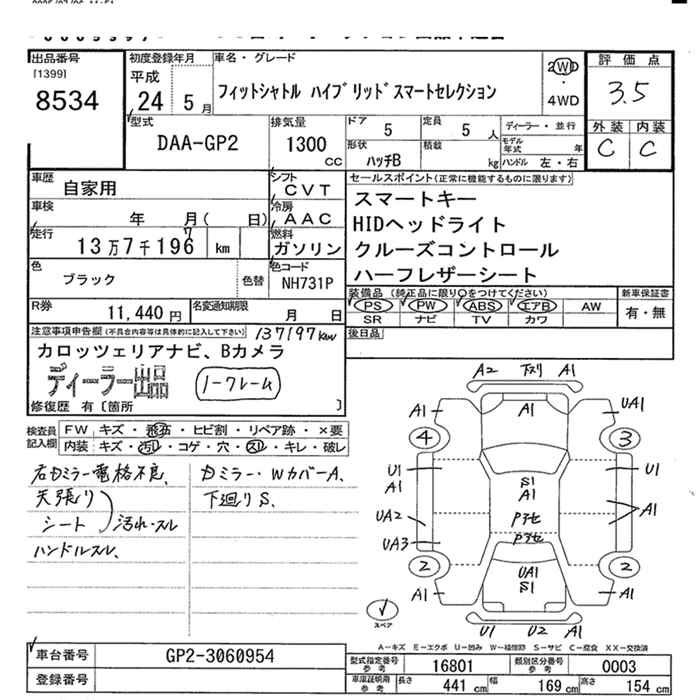 出品番号
[1399]
8534
初度登録年月
平成
24 5 月
車名・グレード
フィットシャトル ハイブリッドスマートセレクション
2WD
・
4WD
評価点
3.5
外装 内装
C C
型式
DAA-GP2
排気量
1300
CC
ドア
5
定員
5 人
形状
ハッチB
積載
kg
ディーラー・並行
モデル年式 年
ハンドル 左・右
車歴
自家用
シフト
CVT
車検
年 月( 日)
冷房
AAC
走行
13万7千196 km
7
燃料
ガソリン
色
ブラック
色替
色コード
NH731P
R券
11,440 円
名変通知期限
月 日
セールスポイント(正常に機能するものに限ります)
スマートキー
HIDヘッドライト
クルーズコントロール
ハーフレザーシート
装備品 (純正品に限り○をつけてください)
PS PW ABS エアB AW
SR ナビ TV カワ
新車保証書
有・無
後日品
注意事項申告欄(不具合内容等は具体的に記入して下さい)
137197km
カロッツェリアナビ、Bカメラ
ディーラー出品
ノークレーム
修復歴 有〔箇所 〕
検査員記入欄
FW キズ・飛石・ヒビ割・リペア跡・×要
内装:キズ・汚れ・コゲ・穴・スリ・キレ・破レ
右カミラー電格不良、
天張り
シート
汚れ・スレ
ハンドルスレ、
カミラー・WカバーA、
下廻りS、
A2 下スリ A1
A1 A1 UA1
4 3
U1 U1
A1 S1
A1 A1
UA2 Pアセ
UA3 Pアセ
2 UA1 2
A1 S1 A1
スペア
U1 U2 A1
A-キズ E-エクボ U-凹み W-補修跡 S-サビ C-腐食 XX-交換済
車台番号
GP2-3060954
登録番号
型式指定番号
参考
16801
類別区分番号
参考
0003
車庫証明用
参考
長さ 441 cm 幅 169 cm 高さ 154 cm